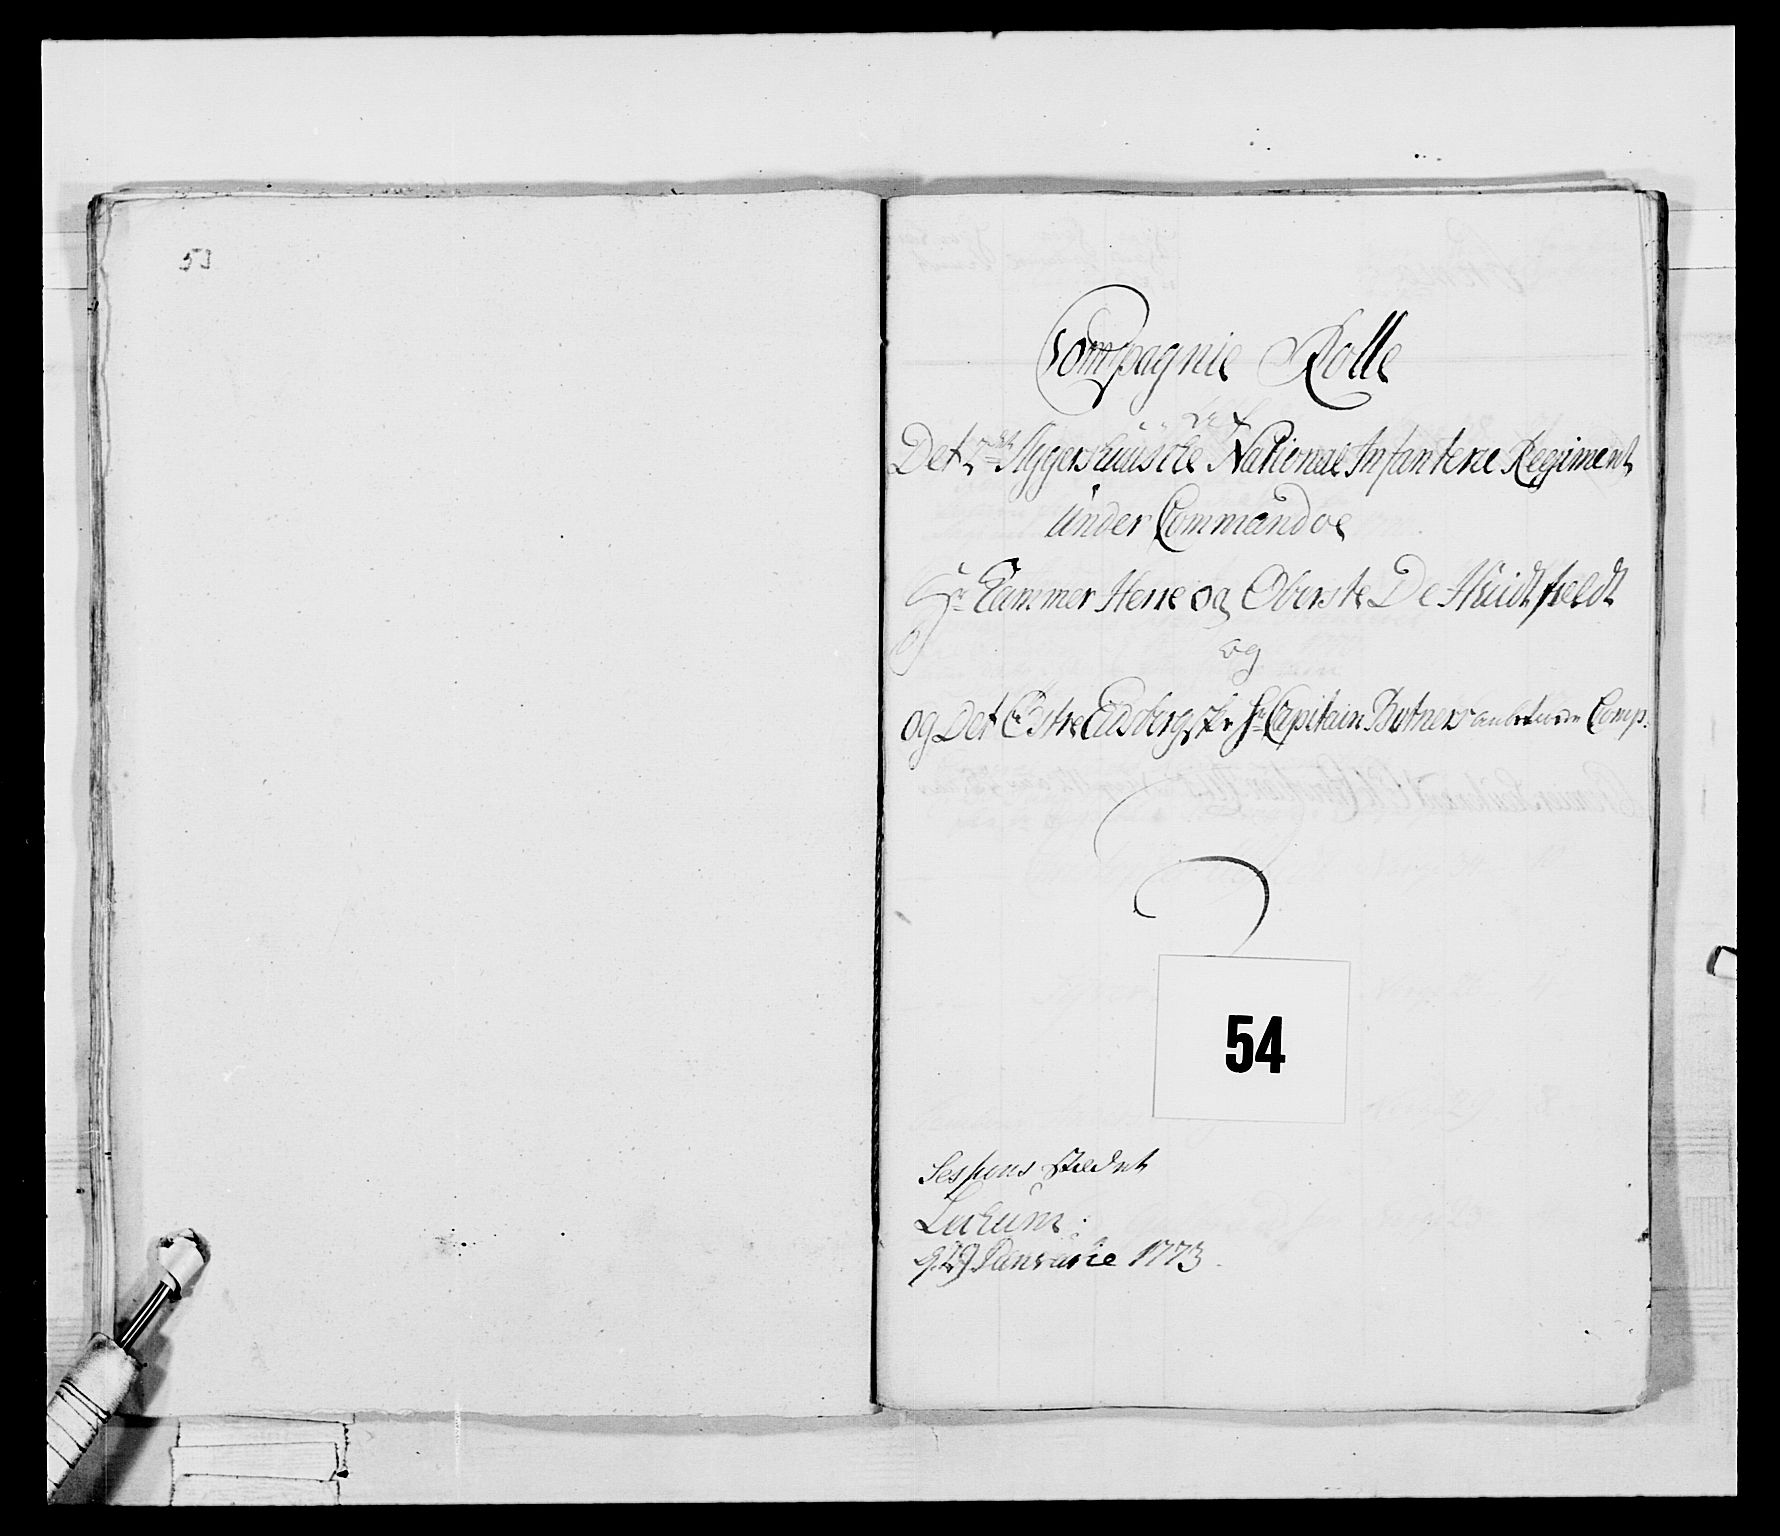 53
Compagnie Rolle
af
Det 2det Aggershuuske National Infanterie Regiment
Under Commandoe
Hr Cammer Herre og Oberste De Huidtfeldt
og
og Det Østre Eidsbergske Hr Capitain Butners anbetroede Comp:
54
Sessions stædet
Luchum:
d: 29 Januarie 1773